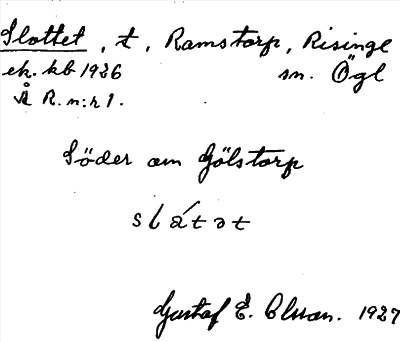 Slottet, t, Ramstorp, Risinge
ek. kb 1926 sn. Ögl
å R. n:r 1.
Söder om Gölstorp
slátət
Gustaf E. Olsson. 1927